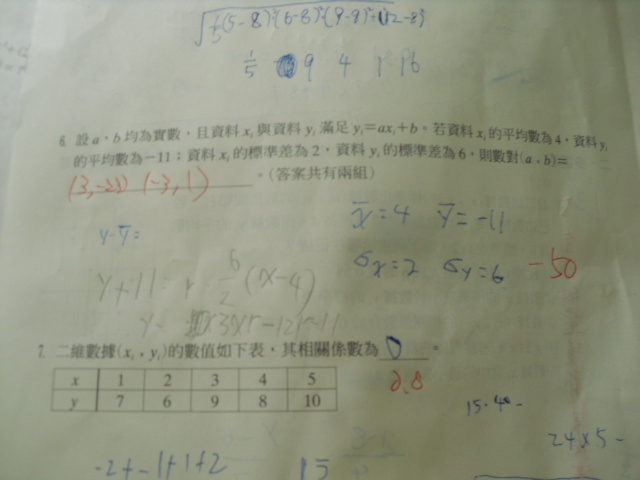 1/5 9 4 1 16
6. 設 a、b 均為實數,且資料 xᵢ 與資料 yᵢ 滿足 yᵢ=axᵢ+b。若資料 xᵢ 的平均數為 4,資料 yᵢ
的平均數為 −11;資料 xᵢ 的標準差為 2,資料 yᵢ 的標準差為 6,則數對(a, b)=
(3,-23) (-3,1) 。(答案共有兩組)
x̄=4 ȳ=-11
y-ȳ=
σx=2 σy=6 -50
y+11=r·6/2(x-4)
7. 二維數據(xᵢ, yᵢ)的數值如下表,其相關係數為 0 。
0.8
x 1 2 3 4 5
y 7 6 9 8 10
24×5-
-2+-1+1+2